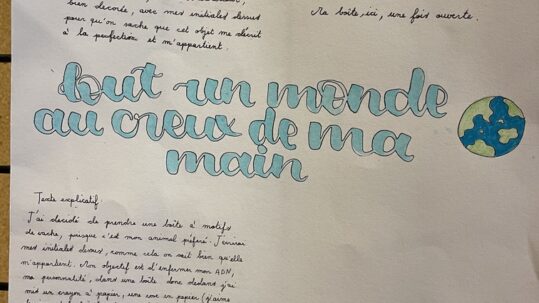 bien décorée, avec mes initiales dessus
pour qu'on sache que cet objet me décrit
à la perfection et m'appartient.
Ma boîte, ici, une fois ouverte.
tout un monde
au creux de ma
main
Texte explicatif:
J'ai décidé de prendre une boîte à motifs
de vache, puisque c'est mon animal préféré. J'
mes initiales dessus, comme cela on sait bien qu'elle
m'appartient. Mon objectif est d'enfermer mon ADN,
ma personnalité, dans une boîte donc dedans j'ai
mis un crayon à papier, une en papier (j'aime